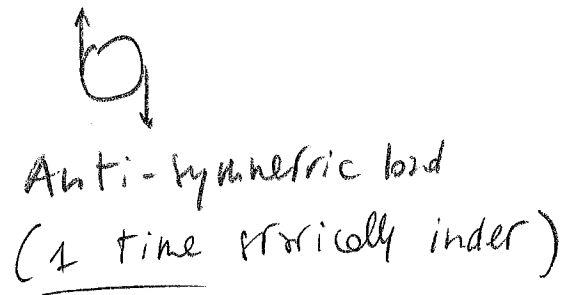 Anti-symmetric load
(1 time statically inder)